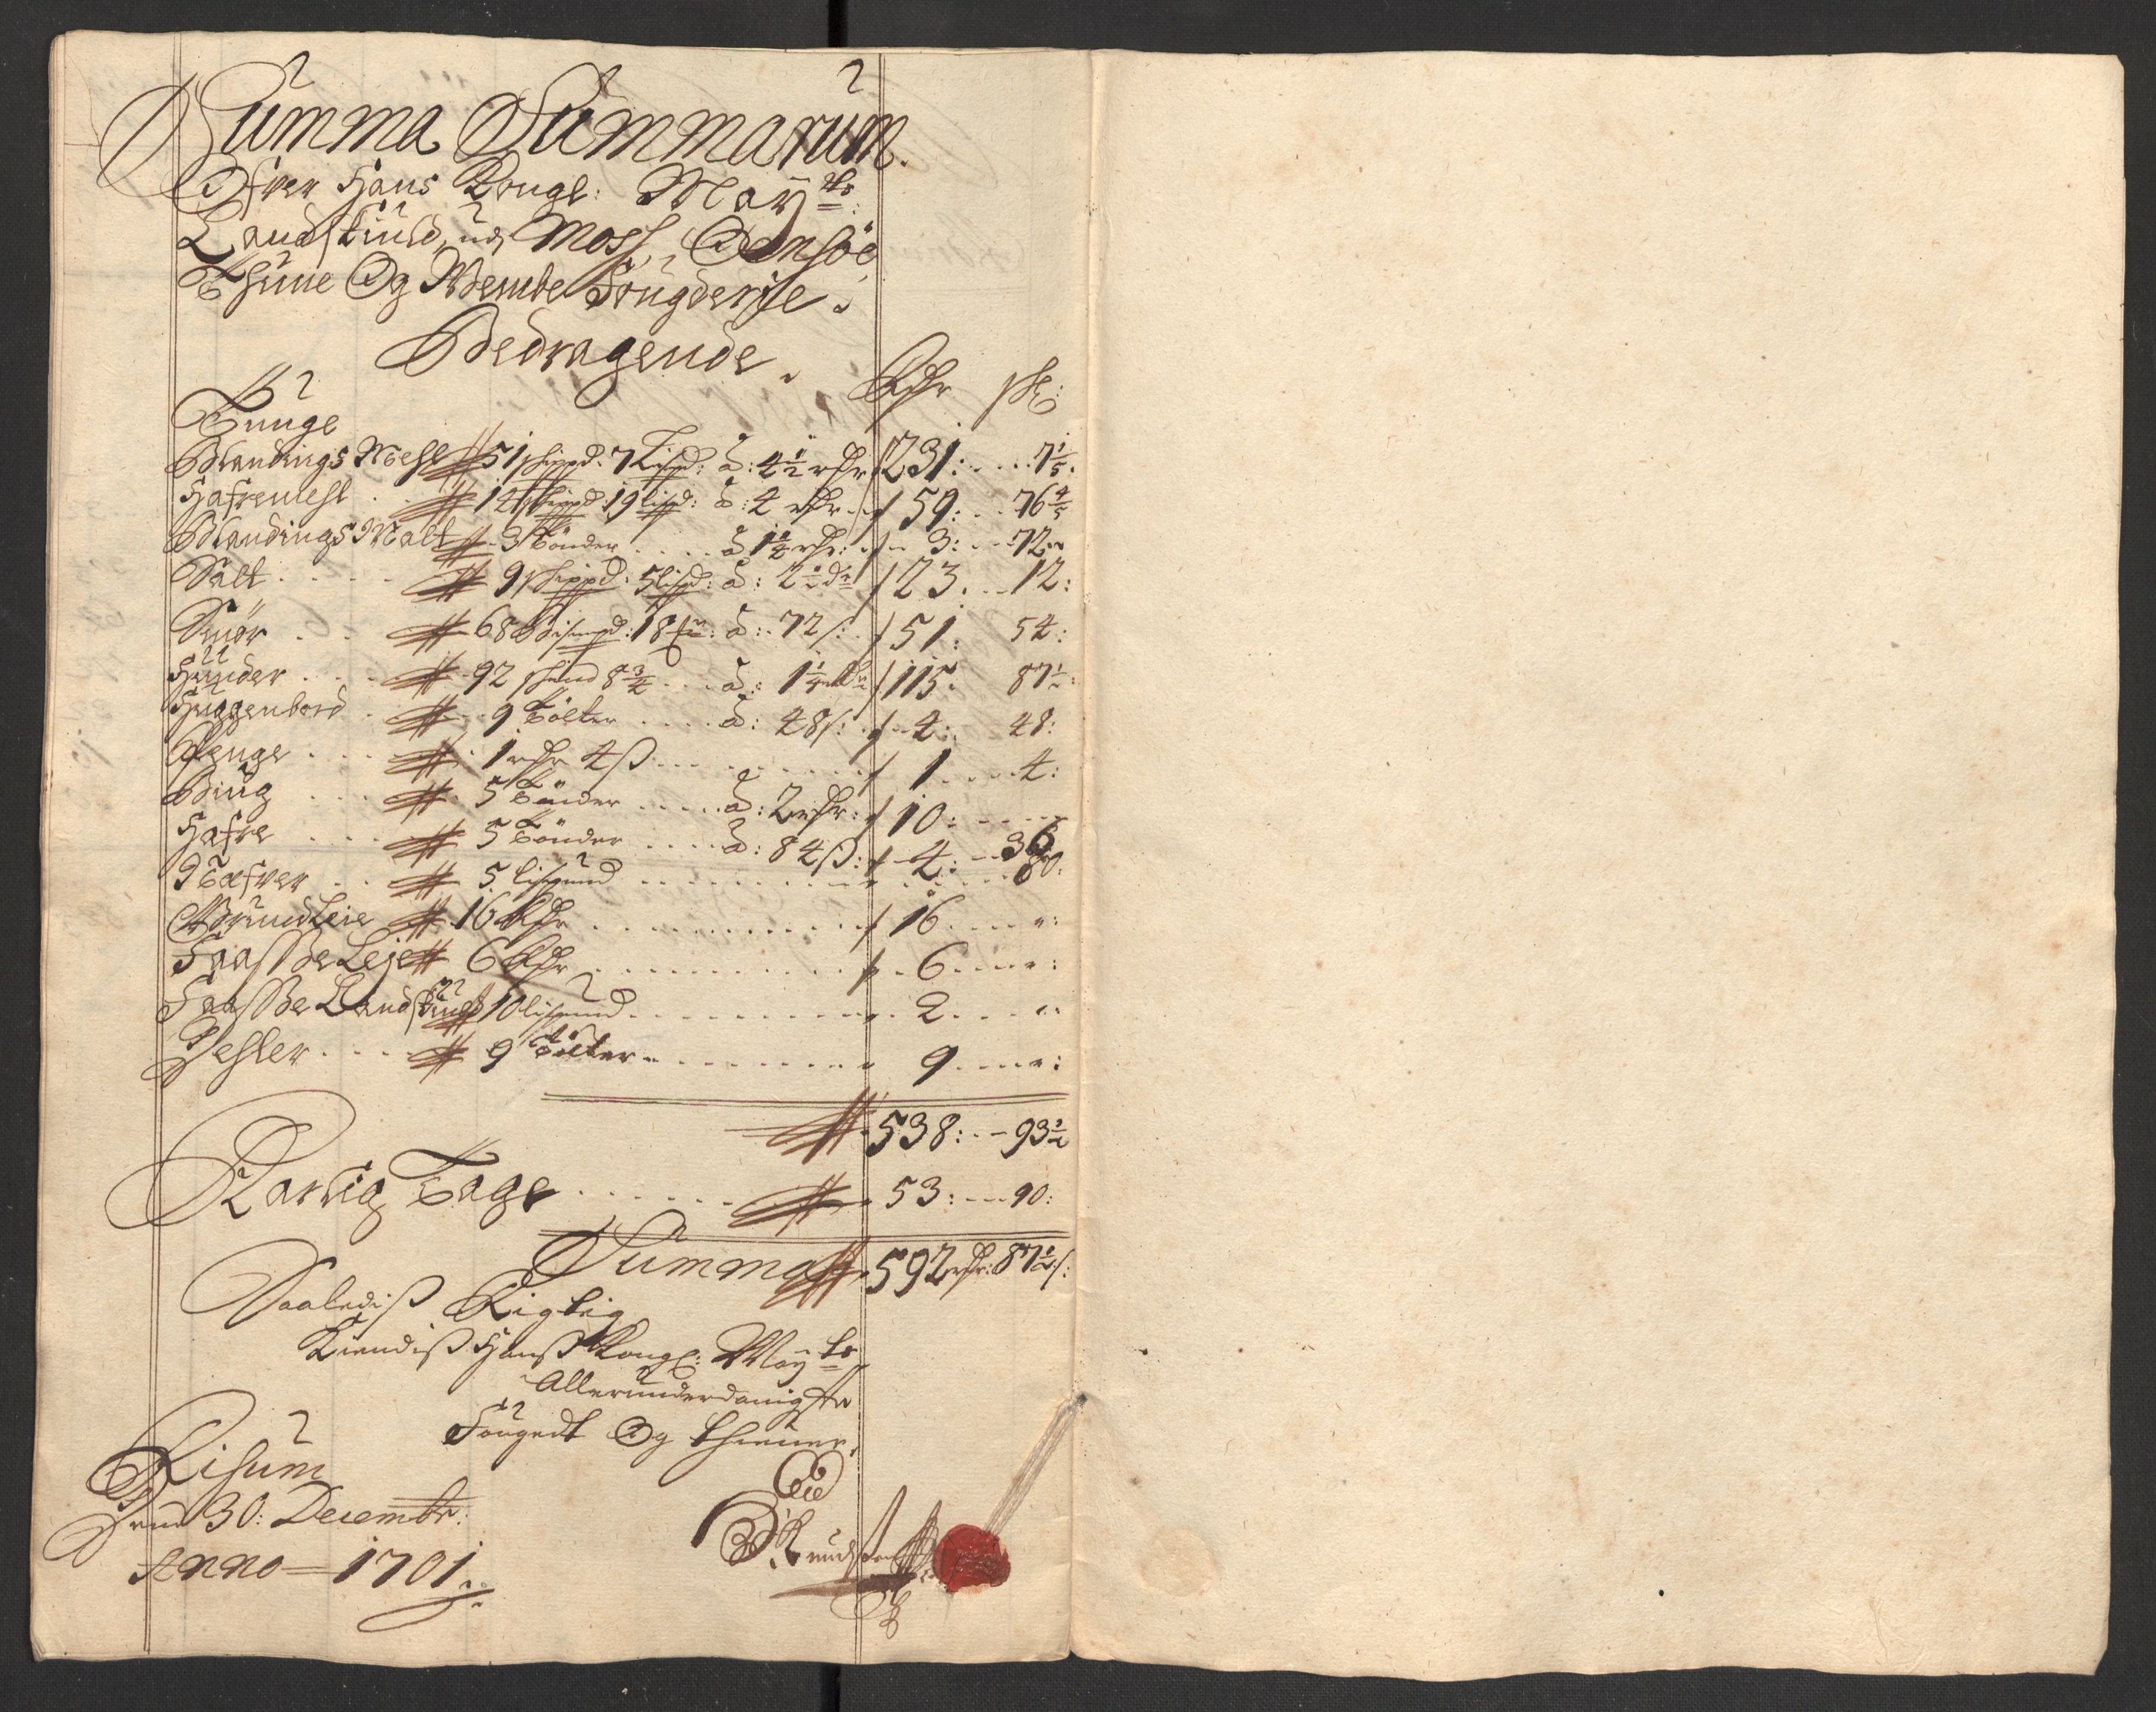 Summa Summarum.
Ofver Hans Kongl: May:ts
Landskiüld, udj Moss, Onsöe
Thune Og Wembe Fougderije.
Bedragende.
Rdr sk:
Tunge
Blandings Mehl 51 skippd. 7 Lispd: à: 4 1/2 rdr 231: 7 1/5.
Hafremehl 14 skippd: 19 lispd: à: 4 rdr 59: 76 4/5
Blandings Malt 3 tönder à 1 1/4 rdr: 3: 72
Salt 9 skippd: 5 lispd: à: 2 1/2 dr 23. 12:
Smör 68 Bismpd: 18 à: 72 s: 51: 54:
Huder 92 skind 8 3/4 à: 1 1/4 rdr 115: 87 1/2:
Huggenbord 9 tölter à: 48 s: 4: 48:
Penge 1 rdr 4 ß 1 4:
Biug 5 tönder à: 2 rdr: 10:
Hafre 5 tönder à: 84 ß: 4: 36
Næfver 5 lispund 80:
Grund Leie 16 Rdr 16
Faasse Leje 6 Rdr 6
Faasse Landskyld 10 lispund 2
Dehler 9 tölter 9
538: 93 1/2
Rarlig Tage 53: 90:
Summa 592 rdr: 87 1/2 s:
Saaledis Rigtig
Kiendis Hans Kongl: May:ts
Allerunderdanigste
Fougedt Og thiener.
Risum
Den 30: Decembr:
Anno 1701